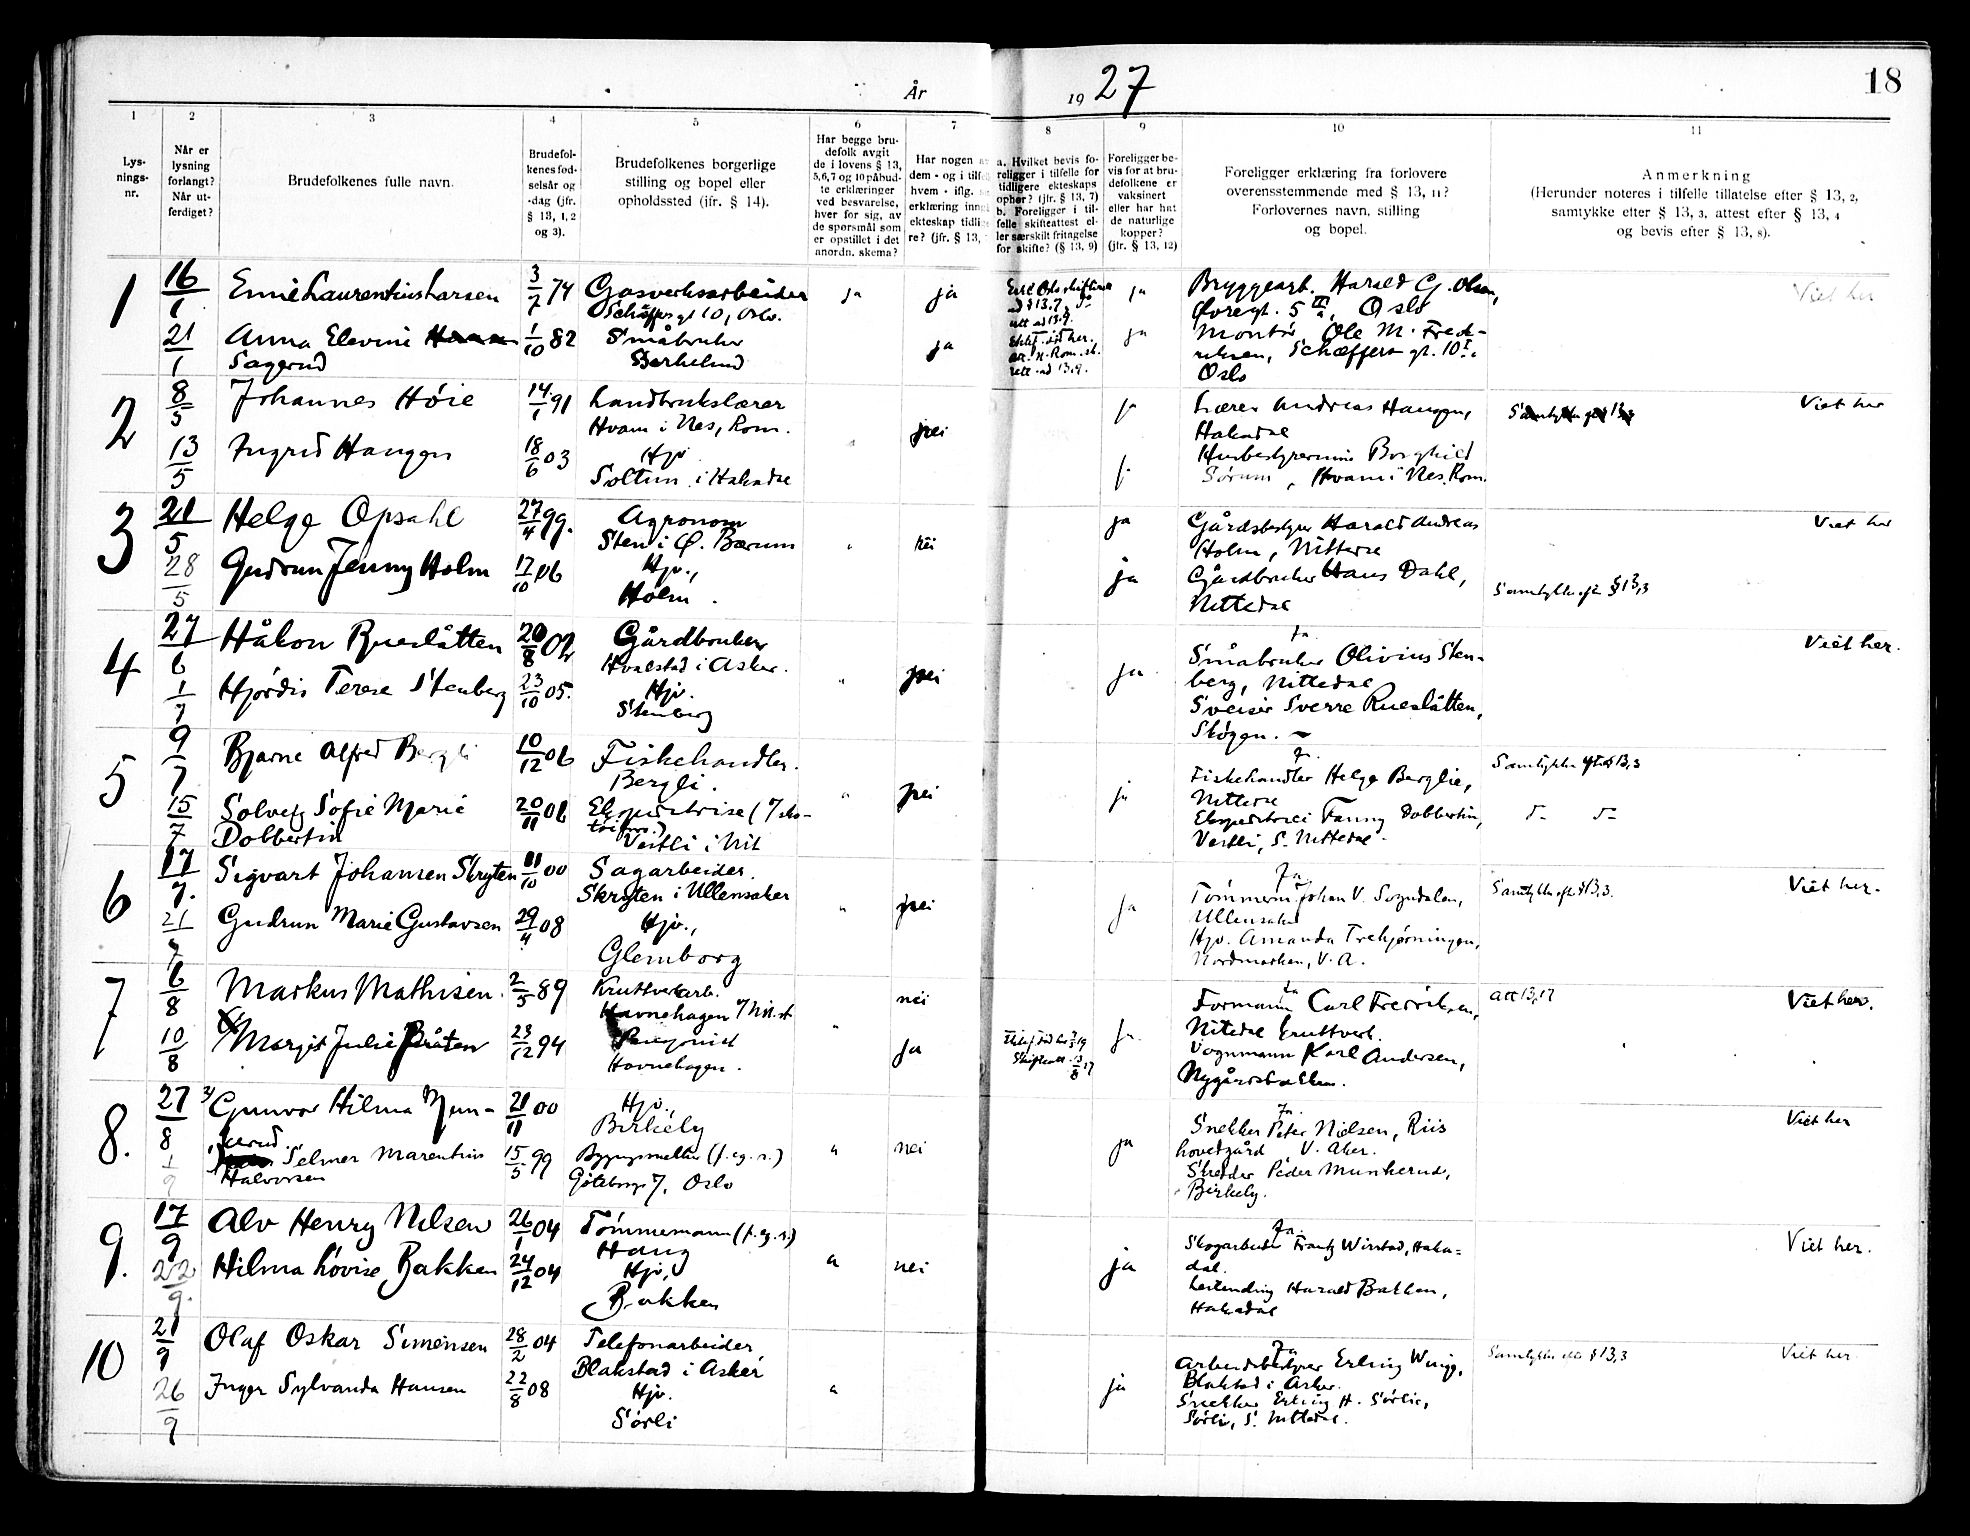 År 1927
18
1
2
3
4
5
6
7
8
9
10
11
Lys-
nings-
nr.
Når er
lysning
forlangt?
Når ut-
ferdiget?
Brudefolkenes fulle navn.
Brudefol-
kenes fød-
selsår og
-dag (jfr.
§ 13, 1, 2
og 3).
Brudefolkenes borgerlige
stilling og bopel eller
opholdssted (ifr. § 14).
Har begge bru-
defolk avgit
de i lovens § 13,
5, 6, 7 og 10 påbud-
te erklæringer
ved besvarelse,
hver for sig, av
de spørsmål som
er opstillet i det
anordn. skema?
Har nogen a
dem - og i tilf
hvem - iflg.
erklæring inn
ekteskap tidli
re? (jfr. § 13,
a. Hvilket bevis fo-
religger i tilfelle for
tidligere ekteskaps
ophør? (jfr. § 13, 7)
b. Foreligger i til-
felle skifteattest el-
ler særskilt fritagelse
for skifte? (§ 13, 9)
Foreligger be-
vis for at bru-
defolkene er
vaksinert
eller har hat
de naturlige
kopper?
(jfr. § 13, 12)
Foreligger erklæring fra forlovere
overensstemmende med § 13, 11?
Forlovernes navn, stilling
og bopel.
Anmerkning
(Herunder noteres i tilfelle tillatelse efter § 13, 2,
samtykke efter § 13, 3, attest efter § 13, 4
og bevis efter § 13, 8).
1
16/1
Emil Laurentius Larsen
3/7 74
Gasverksarbeider
ja
ja
ja
Bryggearb. Harald G. Olsen,
Øvregt. 5 Oslo
Viet her
21/1
Anna Elevine
Sagerud
1/10 82
Småbruker
Bærkelund
ja
ja
Montør Ole M. Fred-
riksen, Schæffers gt. 10 I.
Oslo
2
8/5
Johannes Høie
14/1 91
Landbrukslærer
Hvam i Nes, Rom.
nei
j.
Lærer Andreas Haugen,
Hakadal
Samtykke § 13,3
Viet her
13/5
Ingrid Haugen
18/6 03
Hjv.
Soltun i Hakadal
j.
Husbestyrerinne Borghild
Sørum, Hvam i Nes, Rom.
3
21/5
Helge Opsahl
27/4 99.
Agronom
Sten i Ø. Bærum
nei
ja
Gårdsbestyrer Harald Andreas
Holm, Nittedal
Viet her
28/5
Gudrun Jenny Holm
17/10 06
Hjv.,
Holm.
ja
Gårdbruker Hans Dahl,
Nittedal
Samtykke eft. § 13,3
4
27/6
Håkon Rueslåtten
20/8 02
Gårdbruker
Hvalstad i Asker.
nei
ja
Ja
Småbruker Olivius Sten-
berg, Nittedal
Viet her.
1/7
Hjørdis Terese Stenberg
23/10 05.
Hjv.
Stenberg
Sveiser Sverre Rueslåtten,
Skøyen.
5
9/7
Bjarne Alfred Bergli
10/12 06
Fiskehandler.
Bergli.
nei
ja
Ja.
Fiskehandler Helge Berglie,
Nittedal
Samtykke efter § 13,3
15/7
Solveig Sofie Marie
Dobbertin
20/11 06
Vestli i Nit
Ekspeditrise Fanny Dobbertin,
Vestli, S. Nittedal.
6
17/7.
Sigvart Johansen Skryten
11/10 00
Sagarbeider.
Skryten i Ullensaker
nei
ja
Ja.
Tømmerm. Johan V. Sogndalen,
Ullensaker
Samtykke eft. § 13,3.
Viet her.
21/7
Gudrun Marie Gustavsen
29/4 08
Hjv.,
Glemborg
Hjv. Amanda Trehjørningen,
Nordmarken, V. A.
7
6/8
Markus Mathisen.
2/5 89
Kruttverkarb.
Havnehagen
nei
Ja
Formann Carl Fredriksen,
Nitedal Kruttverk.
Att 13,17
Viet her.
10/8
Margit Julie Bråten
23/12 94
Havnehagen.
ja
Ja.
Vognmann Karl Andersen,
Nygårdsbakken.
8.
27/8
Gunvor Hilma Mun-
kerud.
21/11 00
Hjv.,
Birkely
"
nei
ja
Ja.
Snekker Peter Nielsen, Riis
hovedgård V. Aker.
Viet her
1/9
Selmer Marentius
Halvorsen
15/5 99
Bygningssnekker (f. eg. r.)
Gøteborggt. 7, Oslo
Skredder Peder Munkerud,
Birkely.
9.
17/9
Alv Henry Nilsen
26/1 04
Tømmermann (f. eg. r.)
Haug
"
nei
ja
Ja.
Skogarbeider Frantz Winstad, Haka-
dal.
Viet her.
22/9.
Hilma Lovise Bakken
24/12 04
Hjv,
Bakken
Lastending Harald Bakken,
Hakadal
10
21/9
Olaf Oskar Simensen
28/2 04
Telefonarbeider
Blakstad i Asker
"
ja
Ja
Arbeidsbestyrer Erling Winge,
Blakstad i Asker.
Samtykke efter § 13,3
Viet her.
26/9
Inger Sylvanda Hansen
22/8 08
Hjv.
Sørli
Snekker Erling H. Sørlie,
Sørli, S. Nittedal.